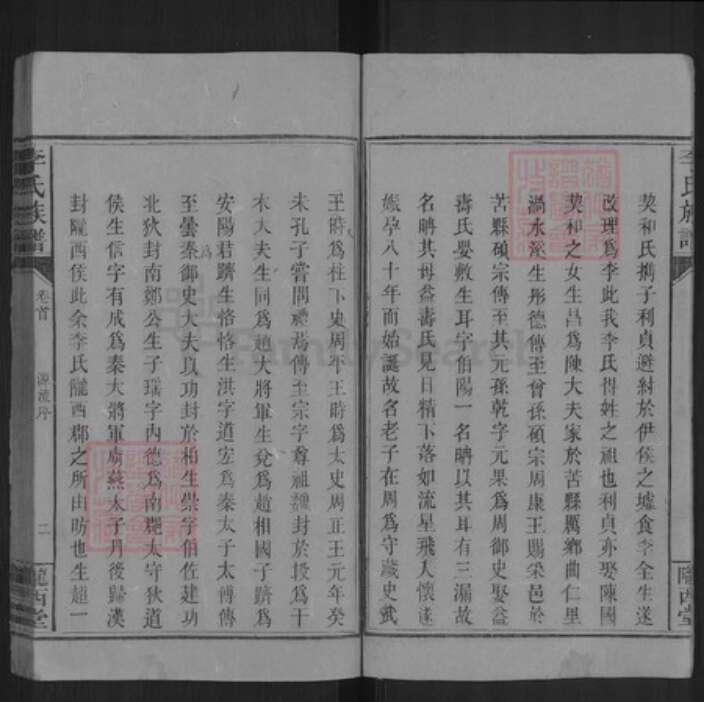 契和氏攜子利貞避紂於伊侯之墟食李全生遂
改理爲李此我李氏得姓之祖也利貞亦娶陳國
契和之女生昌爲陳大夫家於苦縣厲鄉曲仁里
渦水溪生彤德傳至曾孫碩宗周康王賜采邑於
苦縣碩宗傳至其元孫乾字元果爲周御史娶益
壽氏嬰敷生耳字伯陽一名聃以其耳有三漏故
名聃其母益壽氏見日精下落如流星飛入懷遂
娠孕八十年而始誕故名老子在周爲守藏史武
李氏族譜
隴西堂
王時爲柱下史周平王時爲太史周正王元年癸
未孔子嘗問禮焉傳至宗字尊祖魏封於段爲干
木大夫生同爲趙大將軍生兌爲趙相國子躋爲
安陽君躋生恪恪生洪字道宏爲秦太子太傅傳
至曇爲秦御史大夫以功封於柏生崇字伯佐建功
北狄封南鄭公生子瑤字內德爲南鄭太守狄道
侯生信字有成爲秦大將軍虜燕太子丹後歸漢
封隴西侯此余李氏隴西郡之所由昉也生超一
李氏族譜
卷首
源流序
二
隴西堂
FamilySearch